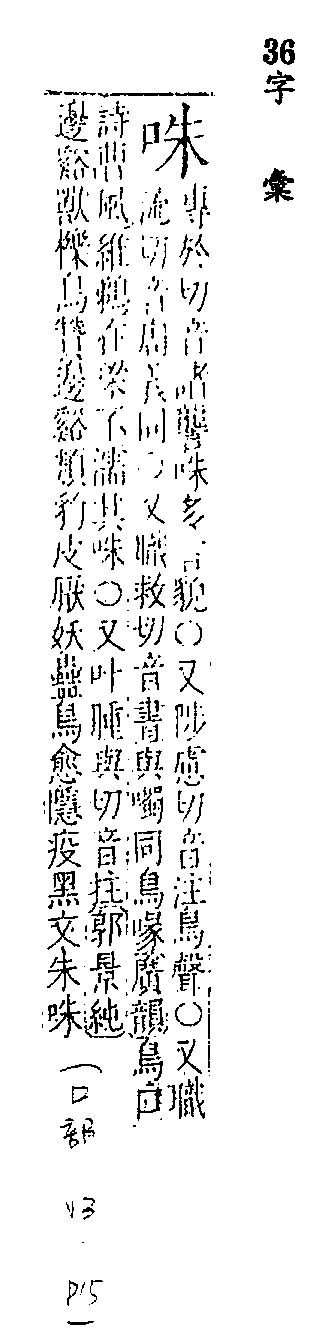 36字彙
咮專於切音諸讋咮多言貌〇又陟慮切音注鳥聲〇又職
流切音周義同〇又職救切音晝與噣同鳥喙廣韻鳥口
詩曹風維鵜在梁不濡其咮〇又叶腫與切音拄郭景純
邊谿獸櫟鳥贊邊谿類豹皮厭妖蠱鳥愈隱疫黑文朱咮(口部
V3
P15